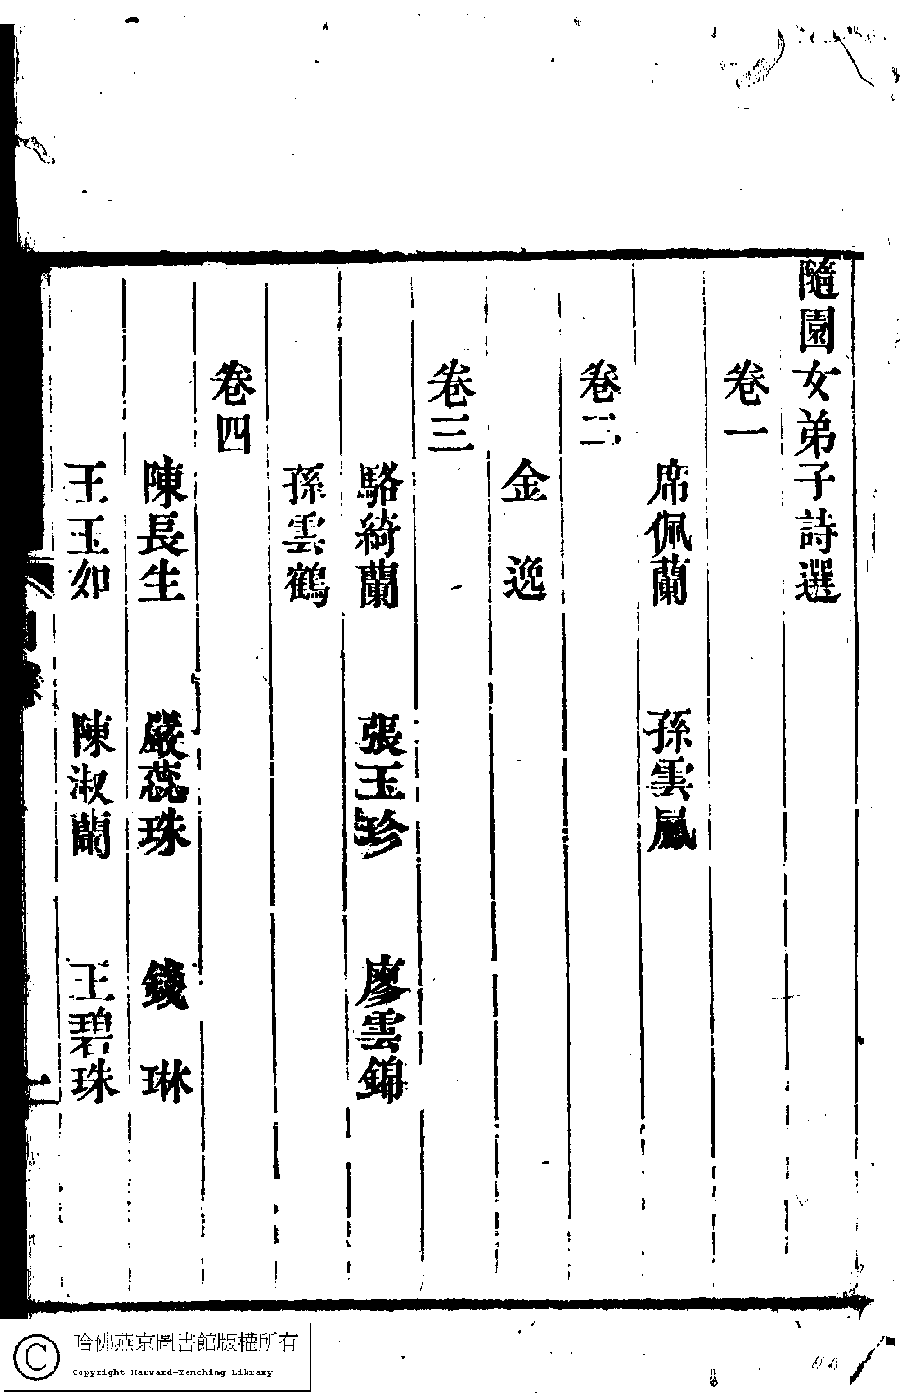 隨園女弟子詩選
卷一
席佩蘭　孫雲鳳
卷二
金　逸
卷三
駱綺蘭　張玉珍　廖雲錦
孫雲鶴
卷四
陳長生　嚴蕊珠　錢　琳
王玉如　陳淑蘭　王碧珠
哈佛燕京圖書館版權所有
Copyright Harvard-Yenching Library